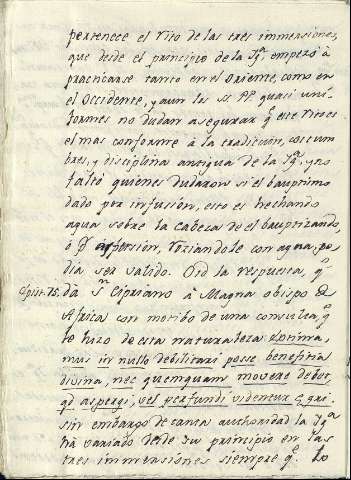 pertenece el rito de las tres immersiones,
que desde el principio de la Ygª empezó á
practicarse tanto en el oriente, como en
el occidente, y aun los SS PP. quasi uni-
formes no dudan asegurar qº este rito es
el mas conforme á la tradicion, costum
bres, y disciplina antigua de la Ygª, y no
faltó quienes dudaron si el bauptismo
dado por infusion, esto es hechando
agua sobre la cabeza de el bauptizando,
ó pr aspersion, roziandole con agua, po
dia ser valido. Oid la respuesta, qº
Epist. 75. da Sn Cipriano á Magno obispo de
Africa con motibo de una consulta, qº
le hizo de esta naturaleza:
mus in nullo debilitari posse beneficia
divina, nec quemquam movere debet,
qd aspergi, vel perfundi videntur
sin embargo de tanta authoridad la Ygª
há variado desde su principio en las
tres immersiones siempre qº lo